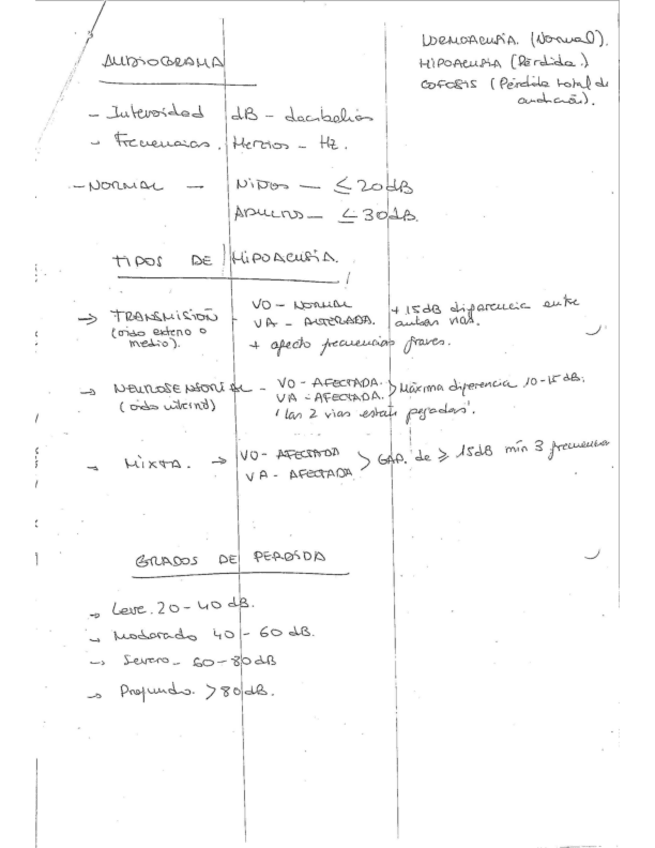 NORMOACUSIA. (Normal).
HIPOACUSIA (Pérdida.)
COFOSIS (Pérdida total de
audición).
AUDIOGRAMA
- Intensidad dB - decibelios
- Frecuencias. Hercios - Hz.
- NORMAL - NIÑOS - ≤ 20dB
ADULTOS - ≤ 30dB.
TIPOS DE HIPOACUSIA.
→ TRANSMISIÓN - VO - NORMAL + 15dB diferencia entre
(oído externo o VA - ALTERADA. ambas vías.
medio). + afecto frecuencias graves.
→ NEUROSENSORIAL - VO - AFECTADA. > Máxima diferencia 10-15 dB.
(oído interno) VA - AFECTADA.
'las 2 vías están pegadas'.
→ MIXTA. → VO - AFECTADA > GAP. de ≥ 15dB mín 3 frecuencias
VA - AFECTADA
GRADOS DE PÉRDIDA
→ Leve. 20 - 40 dB.
→ Moderado 40 - 60 dB.
→ Severo - 60 - 80 dB
→ Profundo. > 80 dB.